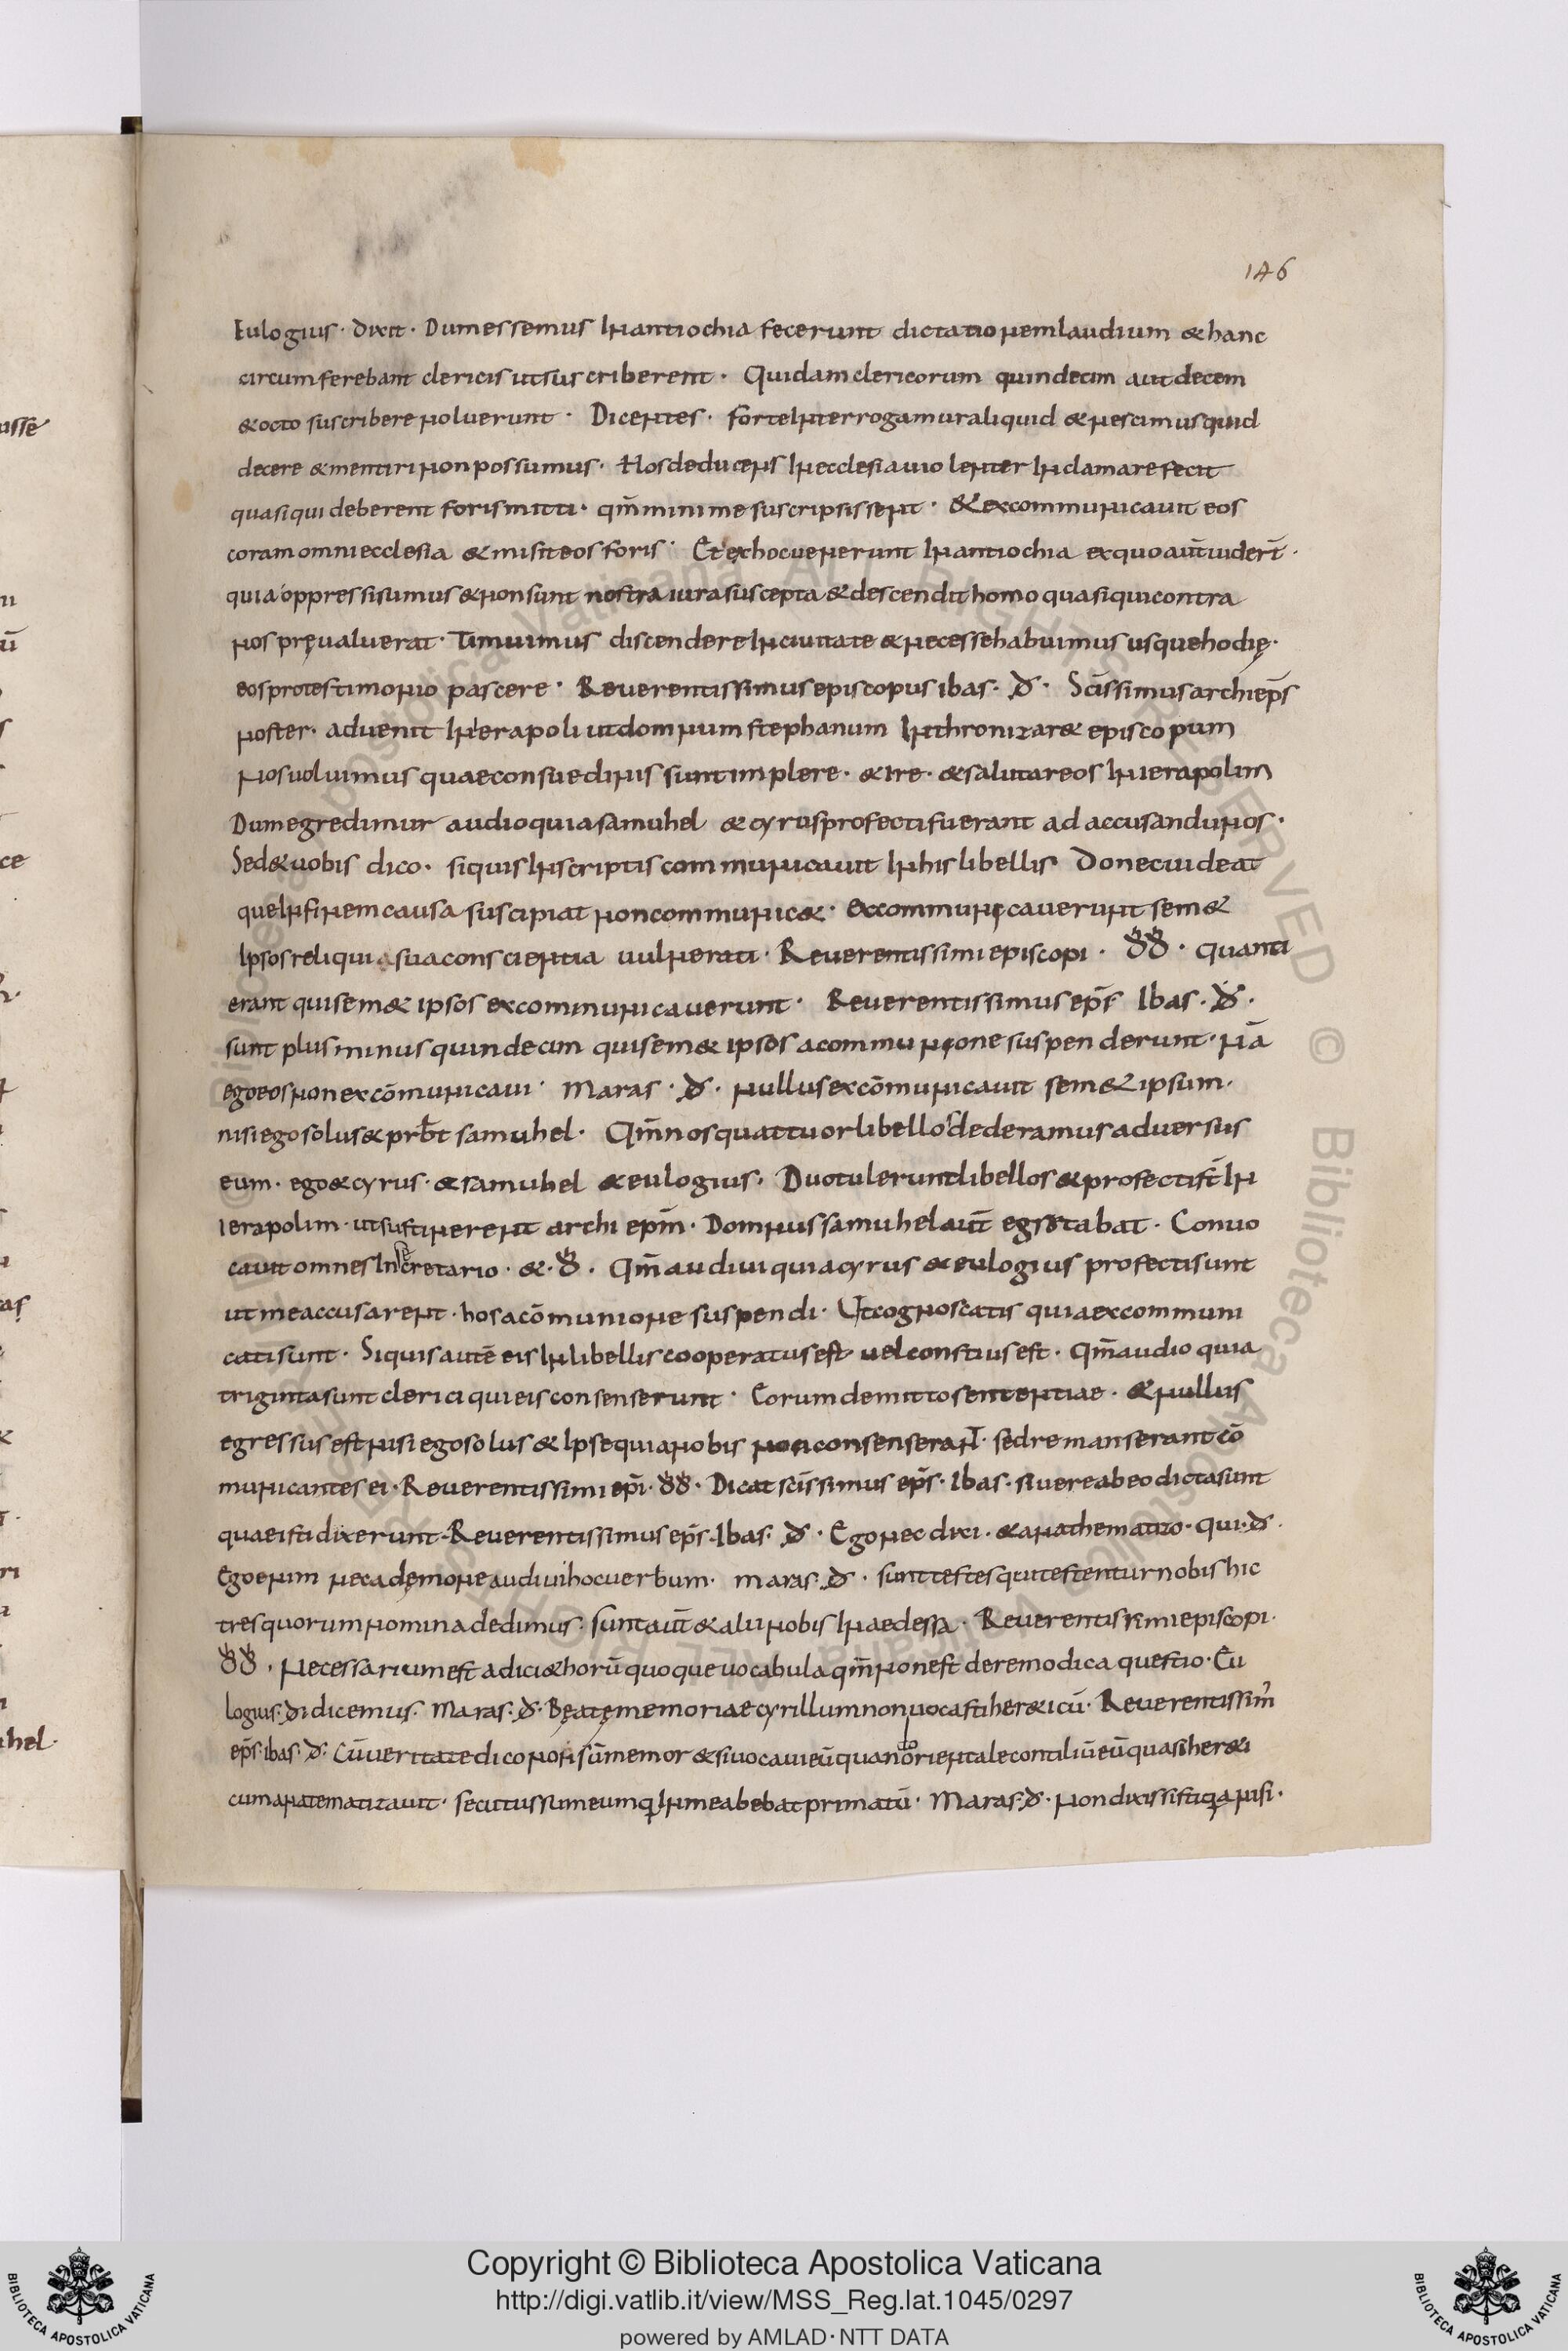 146
Eulogius · dixit · Dum essemus In antiochia fecerunt dictationem laudium & hanc
circumferebant clericis ut suscriberent · Quidam clericorum quindecim aut decem
& octo suscribere noluerunt · Dicentes · forte Interrogamur aliquid & nescimus quid
decere & mentiri non possumus · Hos deducens In ecclesia violenter Inclamare fecit
quasi qui deberent foris mitti · qm̄ minime suscripsissent · & excommunicavit eos
coram omni ecclesia & misit eos foris · Et ex hoc venerunt In antiochia ex quo aut̄ viderт̄ ·
quia oppressi sumus & non sunt nostra iura suscepta & descendit homo quasi qui contra
nos pręvaluerat · Timuimus discendere In civitate & necesse habuimus usque hodię ·
eos pro testimonio pascere · Reverentissimus episcopus ibas · đ · Sc̄issimus archiep̄s
noster · advenit In ierapoli ut domnum stephanum Inthronizar& episcopum
Nos voluimus quae consuedinis sunt implere · & Ire · & salutare eos In ierapolim
Dum egredimur audio quia samuhel & cyrus profecti fuerant ad accusandu nos ·
Sed & vobis dico · si quis In scriptis communicavit In his libellis Donec videat
que In finem causa suscipiat non communic& · excommunicaverunt sem&
Ipsos reliqui a sua conscientia vulnerati · Reverentissimi episcopi · đđ · Quanti
erant qui sem& ipsos excommunicaverunt · Reverentissimus ep̄s Ibas · đ ·
sunt plus minus quindecim qui sem& ipsos a commun̨one suspenderunt · nā
ego eos non excōmunicavi · Maras · đ · nullus excōmunicavit sem& ipsum ·
nisi ego solus & prb̄t samuhel · Qm̄ nos quattuor libellos dederamus adversus
eum · ego & cyrus · & samuhel & eulogius · Duo tulerunt libellos & profecti st̄ In
Ierapolim · ut sustinerent archi epm̄ · Domnus samuhel aut̄ egrotabat · Convo
cavit omnes In secretario · & · đ · Qm̄ audivi quia cyrus & eulogius profecti sunt
ut me accusarent · hos a cōmunione suspendi · Ut cognoscatis quia excommuni
cati sunt · Si quis autē eis In libellis cooperatus est vel constius est · Qm̄ audio quia
triginta sunt clerici qui eis consenserunt · Eorum demitto sententiae · & nullus
egressus est nisi ego solus & Ipse quia nobis non consenserant · sed remanserant cō
municantes ei · Reverentissimi ep̄i · đđ · Dicat sc̄issimus ep̄s · Ibas · si vere ab eo dicta sunt
quae isti dixerunt · Reverentissimus ep̄s · Ibas · đ · Ego nec dixi · & anathematizo · qui · đ ·
Ego enim nec a dęmone audivi hoc verbum · maras · đ · sunt testes qui testentur nobis hic
tres quorum nomina dedimus · sunt aut̄ & alii nobis In aedessa · Reverentissimi episcopi ·
đđ · Necessarium est adici & horū quoque vocabula qm̄ non est de re modica questio · Eu
logius · đ · dicemus · Maras · đ · Beatę memoriae cyrillum non vocasti her&icū · Reverentissim̄
ep̄s · ibas · đ · Cū veritate dico non sū memor & si vocavi eū quando orientale contiliū eū quasi her&i
cum anatematizavit · secutus sum eum q̨ In me abebat primatū · Maras · đ · non dixissisti q̨a nisi ·